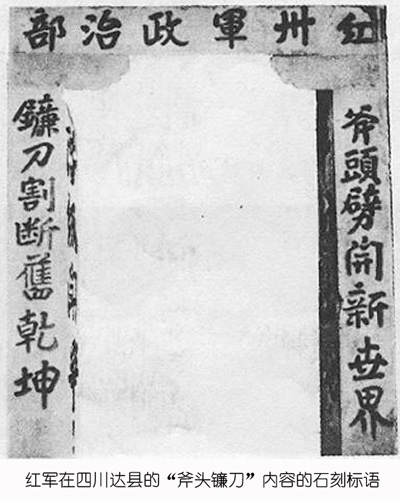 紅卅軍政治部
斧頭劈開新世界
鐮刀割断舊乾坤
红军在四川达县的“斧头镰刀”内容的石刻标语